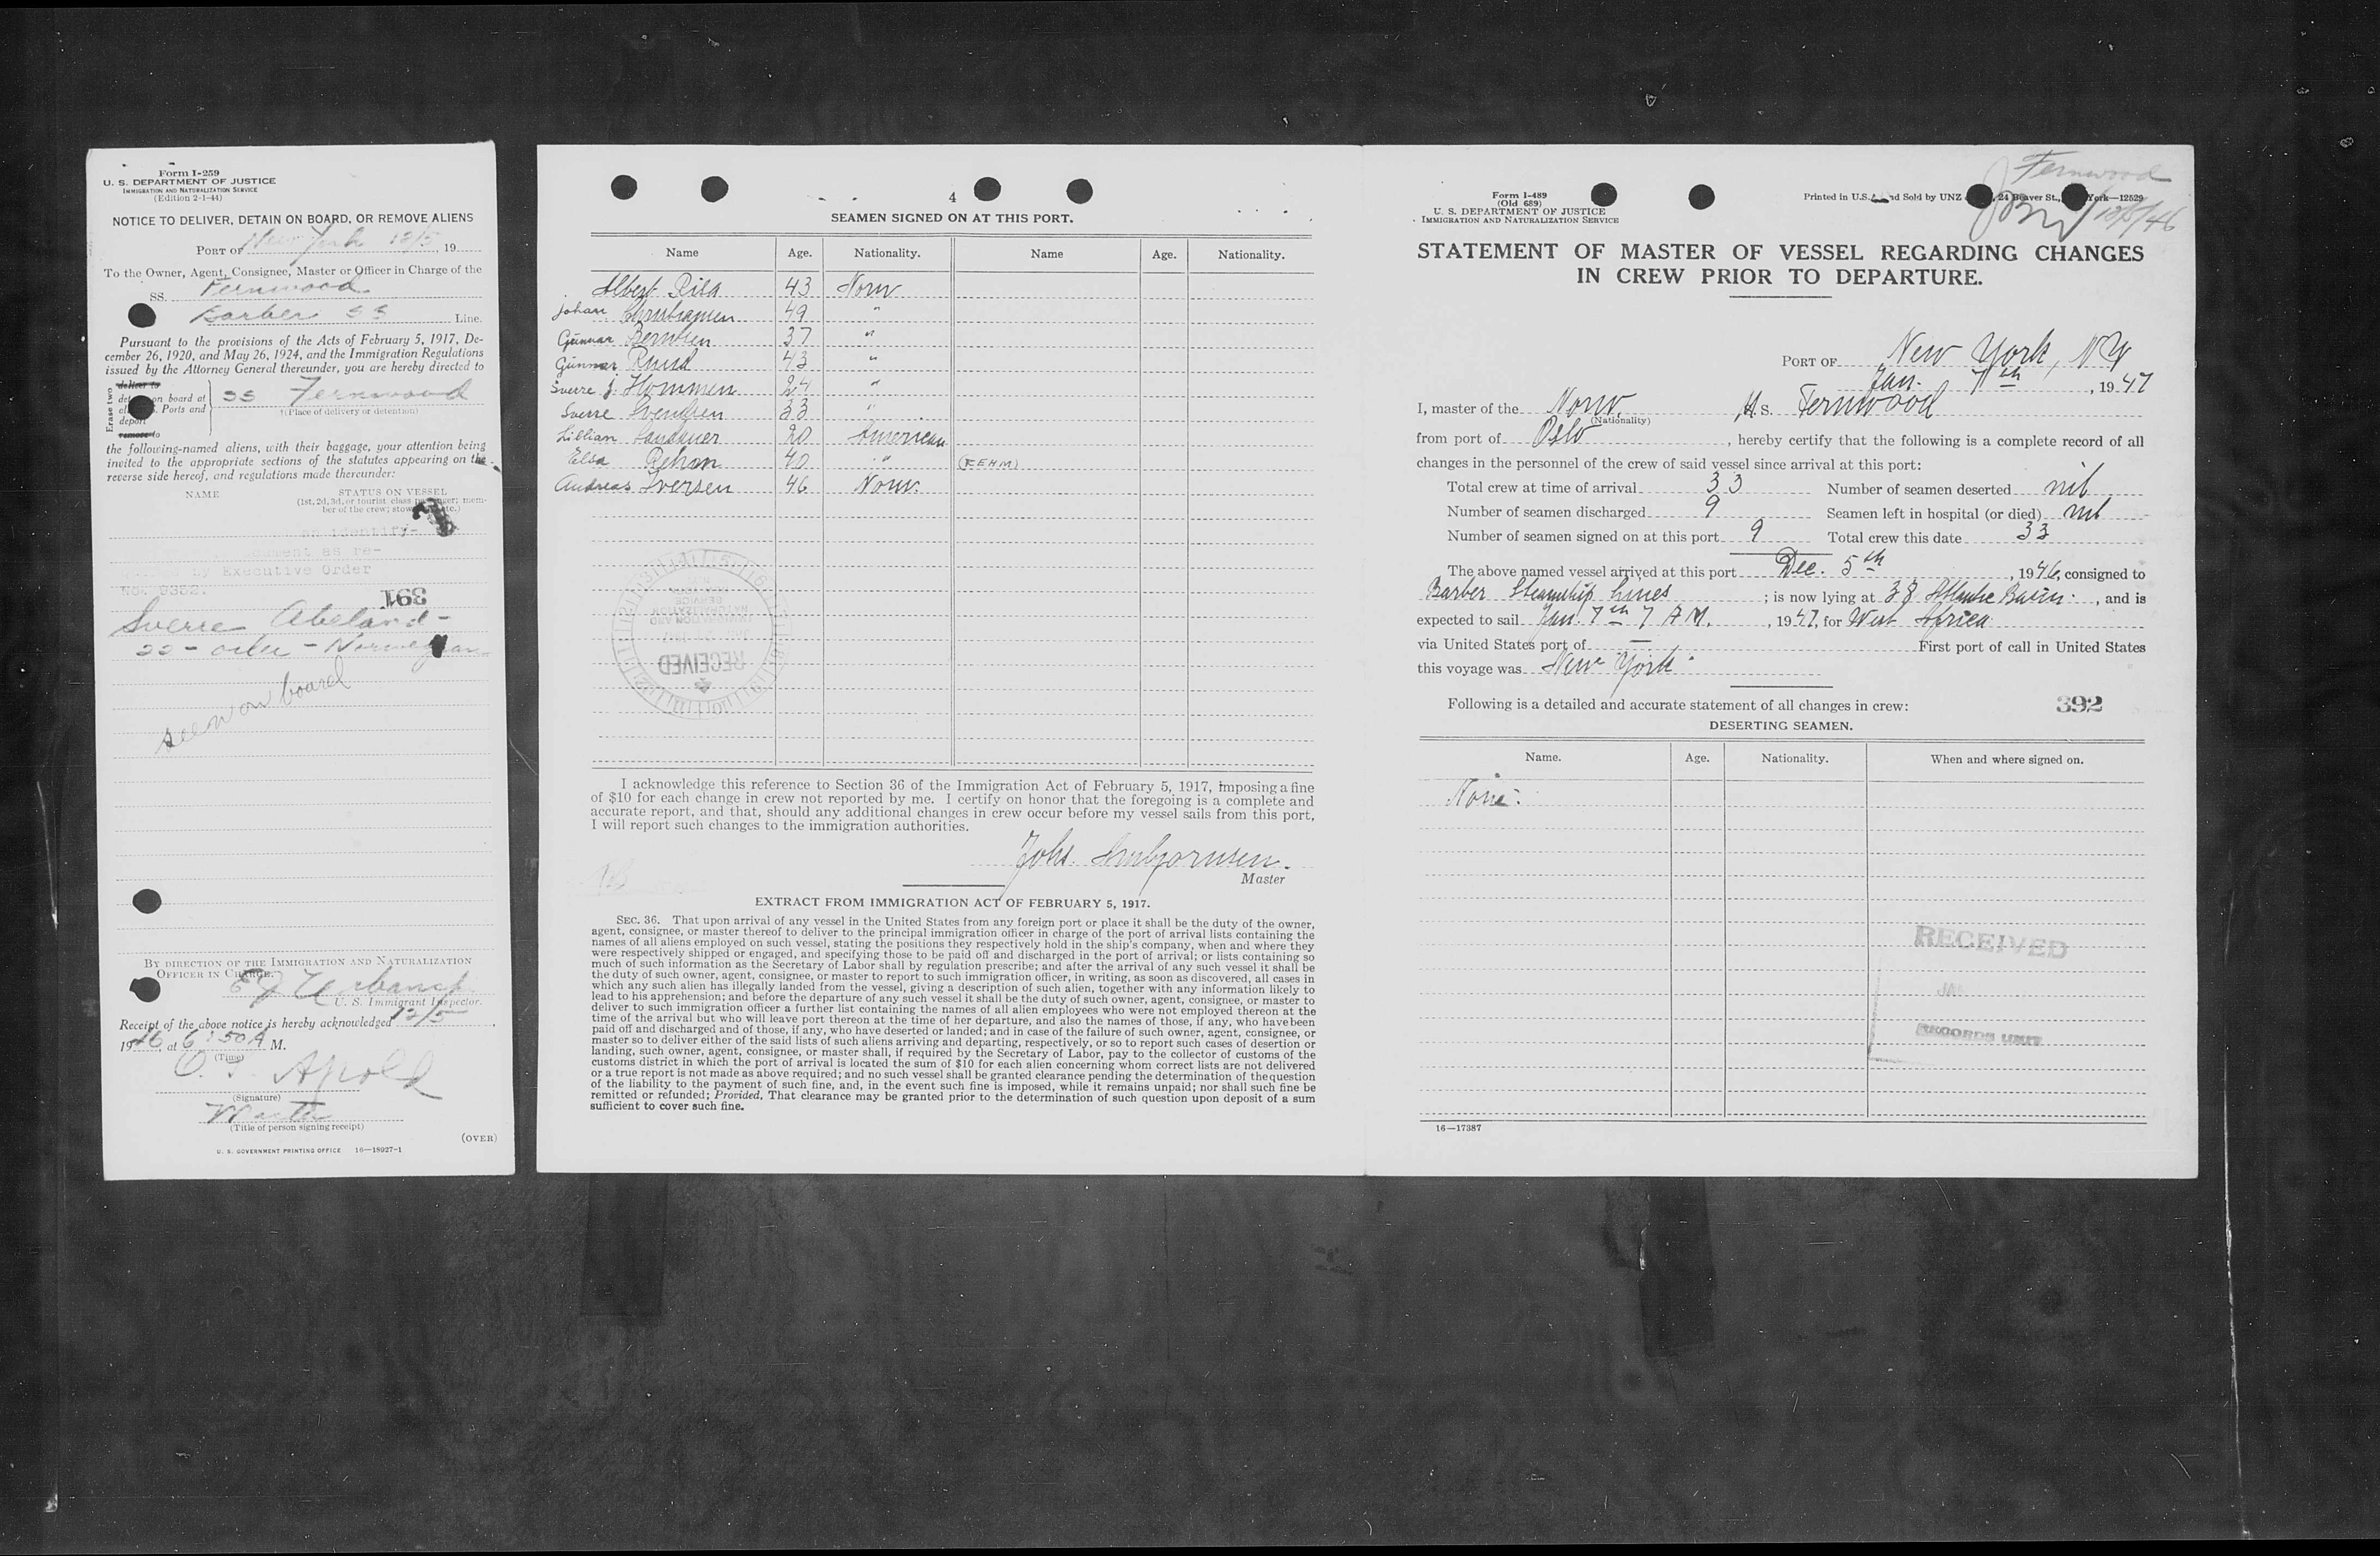 Form I-259
U. S. DEPARTMENT OF JUSTICE
IMMIGRATION AND NATURALIZATION SERVICE
(Edition 2-1-44)
NOTICE TO DELIVER, DETAIN ON BOARD, OR REMOVE ALIENS
PORT OF New York 12/5, 19
To the Owner, Agent, Consignee, Master or Officer in Charge of the
SS. Fernwood
Barber SS Line.
Pursuant to the provisions of the Acts of February 5, 1917, De-
cember 26, 1920, and May 26, 1924, and the Immigration Regulations
issued by the Attorney General thereunder, you are hereby directed to
Erase two
deliver to
on board at
Ports and
depart
remove to
SS Fernwood
†(Place of delivery or detention)
the following-named aliens, with their baggage, your attention being
invited to the appropriate sections of the statutes appearing on the
reverse side hereof, and regulations made thereunder:
NAME STATUS ON VESSEL
(1st, 2d, 3d, or tourist class passenger; mem-
ber of the crew; stowaway, etc.)
identify-
as re-
by Executive Order
No. 9352.
391
Sverre Abeland-
22 - oiler - Norwegian
seen on board
BY DIRECTION OF THE IMMIGRATION AND NATURALIZATION
OFFICER IN CHARGE.
U. S. Immigrant Inspector.
Receipt of the above notice is hereby acknowledged 12/5
1946, at 6:50 A M.
(Time)
Apold
(Signature)
(Title of person signing receipt)
(OVER)
U. S. GOVERNMENT PRINTING OFFICE 16—18927-1
4
SEAMEN SIGNED ON AT THIS PORT.
Name Age. Nationality. Name Age. Nationality.
Albert Risa 43 Norw
Johan Christiansen 49 "
Gunnar Berntsen 37 "
Gunnar Ruud 43 "
Sverre J. Hommen 24 "
Sverre Svendsen 33 "
Lillian Landauer 20 American
Elsa Rehm 40 " (REHM)
Andreas Iversen 46 Norw.
RECEIVED
I acknowledge this reference to Section 36 of the Immigration Act of February 5, 1917, imposing a fine
of $10 for each change in crew not reported by me. I certify on honor that the foregoing is a complete and
accurate report, and that, should any additional changes in crew occur before my vessel sails from this port,
I will report such changes to the immigration authorities.
Johs.
Master
EXTRACT FROM IMMIGRATION ACT OF FEBRUARY 5, 1917.
SEC. 36. That upon arrival of any vessel in the United States from any foreign port or place it shall be the duty of the owner,
agent, consignee, or master thereof to deliver to the principal immigration officer in charge of the port of arrival lists containing the
names of all aliens employed on such vessel, stating the positions they respectively hold in the ship's company, when and where they
were respectively shipped or engaged, and specifying those to be paid off and discharged in the port of arrival; or lists containing so
much of such information as the Secretary of Labor shall by regulation prescribe; and after the arrival of any such vessel it shall be
the duty of such owner, agent, consignee, or master to report to such immigration officer, in writing, as soon as discovered, all cases in
which any such alien has illegally landed from the vessel, giving a description of such alien, together with any information likely to
lead to his apprehension; and before the departure of any such vessel it shall be the duty of such owner, agent, consignee, or master to
deliver to such immigration officer a further list containing the names of all alien employees who were not employed thereon at the
time of the arrival but who will leave port thereon at the time of her departure, and also the names of those, if any, who have been
paid off and discharged and of those, if any, who have deserted or landed; and in case of the failure of such owner, agent, consignee, or
master so to deliver either of the said lists of such aliens arriving and departing, respectively, or so to report such cases of desertion or
landing, such owner, agent, consignee, or master shall, if required by the Secretary of Labor, pay to the collector of customs of the
customs district in which the port of arrival is located the sum of $10 for each alien concerning whom correct lists are not delivered
or a true report is not made as above required; and no such vessel shall be granted clearance pending the determination of the question
of the liability to the payment of such fine, and, in the event such fine is imposed, while it remains unpaid; nor shall such fine be
remitted or refunded; Provided, That clearance may be granted prior to the determination of such question upon deposit of a sum
sufficient to cover such fine.
Fernwood
12/5/46
Form I-489
(Old 689)
U. S. DEPARTMENT OF JUSTICE
IMMIGRATION AND NATURALIZATION SERVICE
Printed in U.S.A. and Sold by UNZ 24 Beaver St., York—12529
STATEMENT OF MASTER OF VESSEL REGARDING CHANGES
IN CREW PRIOR TO DEPARTURE.
PORT OF New York, NY
Jan. 7th, 1947
I, master of the Norw. M S. Fernwood
(Nationality)
from port of Oslo, hereby certify that the following is a complete record of all
changes in the personnel of the crew of said vessel since arrival at this port:
Total crew at time of arrival 33 Number of seamen deserted nil
Number of seamen discharged 9 Seamen left in hospital (or died) nil
Number of seamen signed on at this port 9 Total crew this date 33
The above named vessel arrived at this port Dec. 5th, 1946, consigned to
Barber Steamship Lines; is now lying at 38 Atlantic Basin, and is
expected to sail Jan. 7th 7 AM., 1947, for West Africa
via United States port of — First port of call in United States
this voyage was New York.
Following is a detailed and accurate statement of all changes in crew:
392
DESERTING SEAMEN.
Name. Age. Nationality. When and where signed on.
None.
RECEIVED
JAN
RECORDS UNIT
16—17387